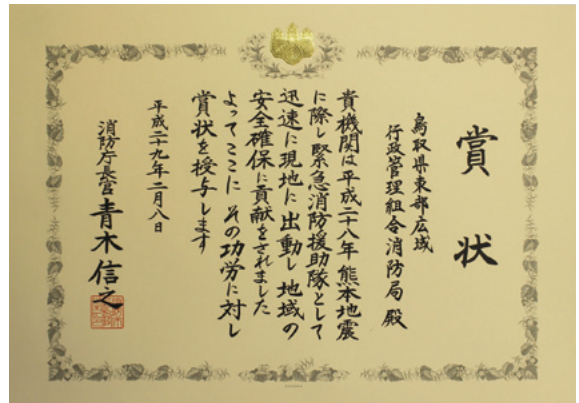 賞状
鳥取県東部広域
行政管理組合消防局 殿
貴機関は平成二十八年 熊本地震
に際し緊急消防援助隊として
迅速に現地に出動し 地域の
安全確保に貢献をされました
よってここに その功労に対し
賞状を授与します
平成二十九年二月八日
消防庁長官 青木信之